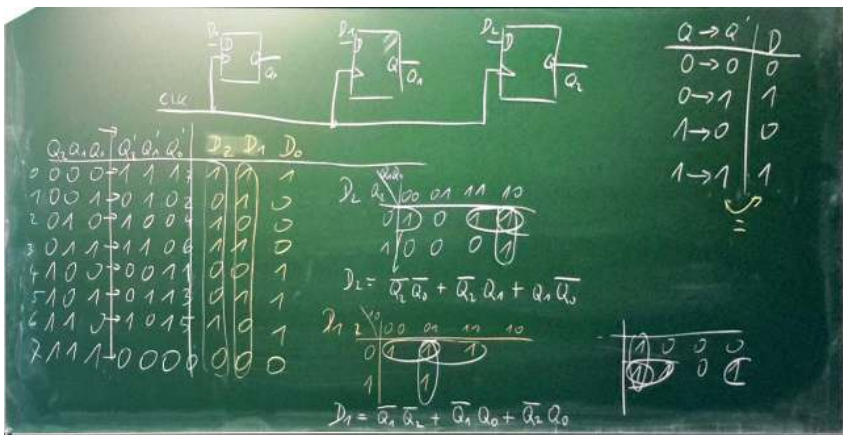 D₀ D Q Q₀
D₁ D Q Q₁
D₂ D Q Q₂
CLK
Q → Q' D
0→0 0
0→1 1
1→0 0
1→1 1
=
Q₂ Q₁ Q₀ Q₂' Q₁' Q₀' D₂ D₁ D₀
0 0 0 0 → 1 1 1 7 1 1 1
1 0 0 1 → 0 1 0 2 0 1 0
2 0 1 0 → 1 0 0 4 1 0 0
3 0 1 1 → 1 1 0 6 1 1 0
4 1 0 0 → 0 0 1 1 0 0 1
5 1 0 1 → 0 1 1 3 0 1 1
6 1 1 0 → 1 0 1 5 1 0 1
7 1 1 1 → 0 0 0 0 0 0 0
D₂ Q₂ Q₁Q₀ 00 01 11 10
0 1 0 1 1
1 0 0 0 1
D₂ = Q̅₂ Q̅₀ + Q̅₂ Q₁ + Q₁ Q̅₀
D₁ 2 10 00 01 11 10
0 1 1 1
1 1
D₁ = Q̅₁ Q̅₂ + Q̅₁ Q₀ + Q̅₂ Q₀
1 0 0 0
1 1 0 1